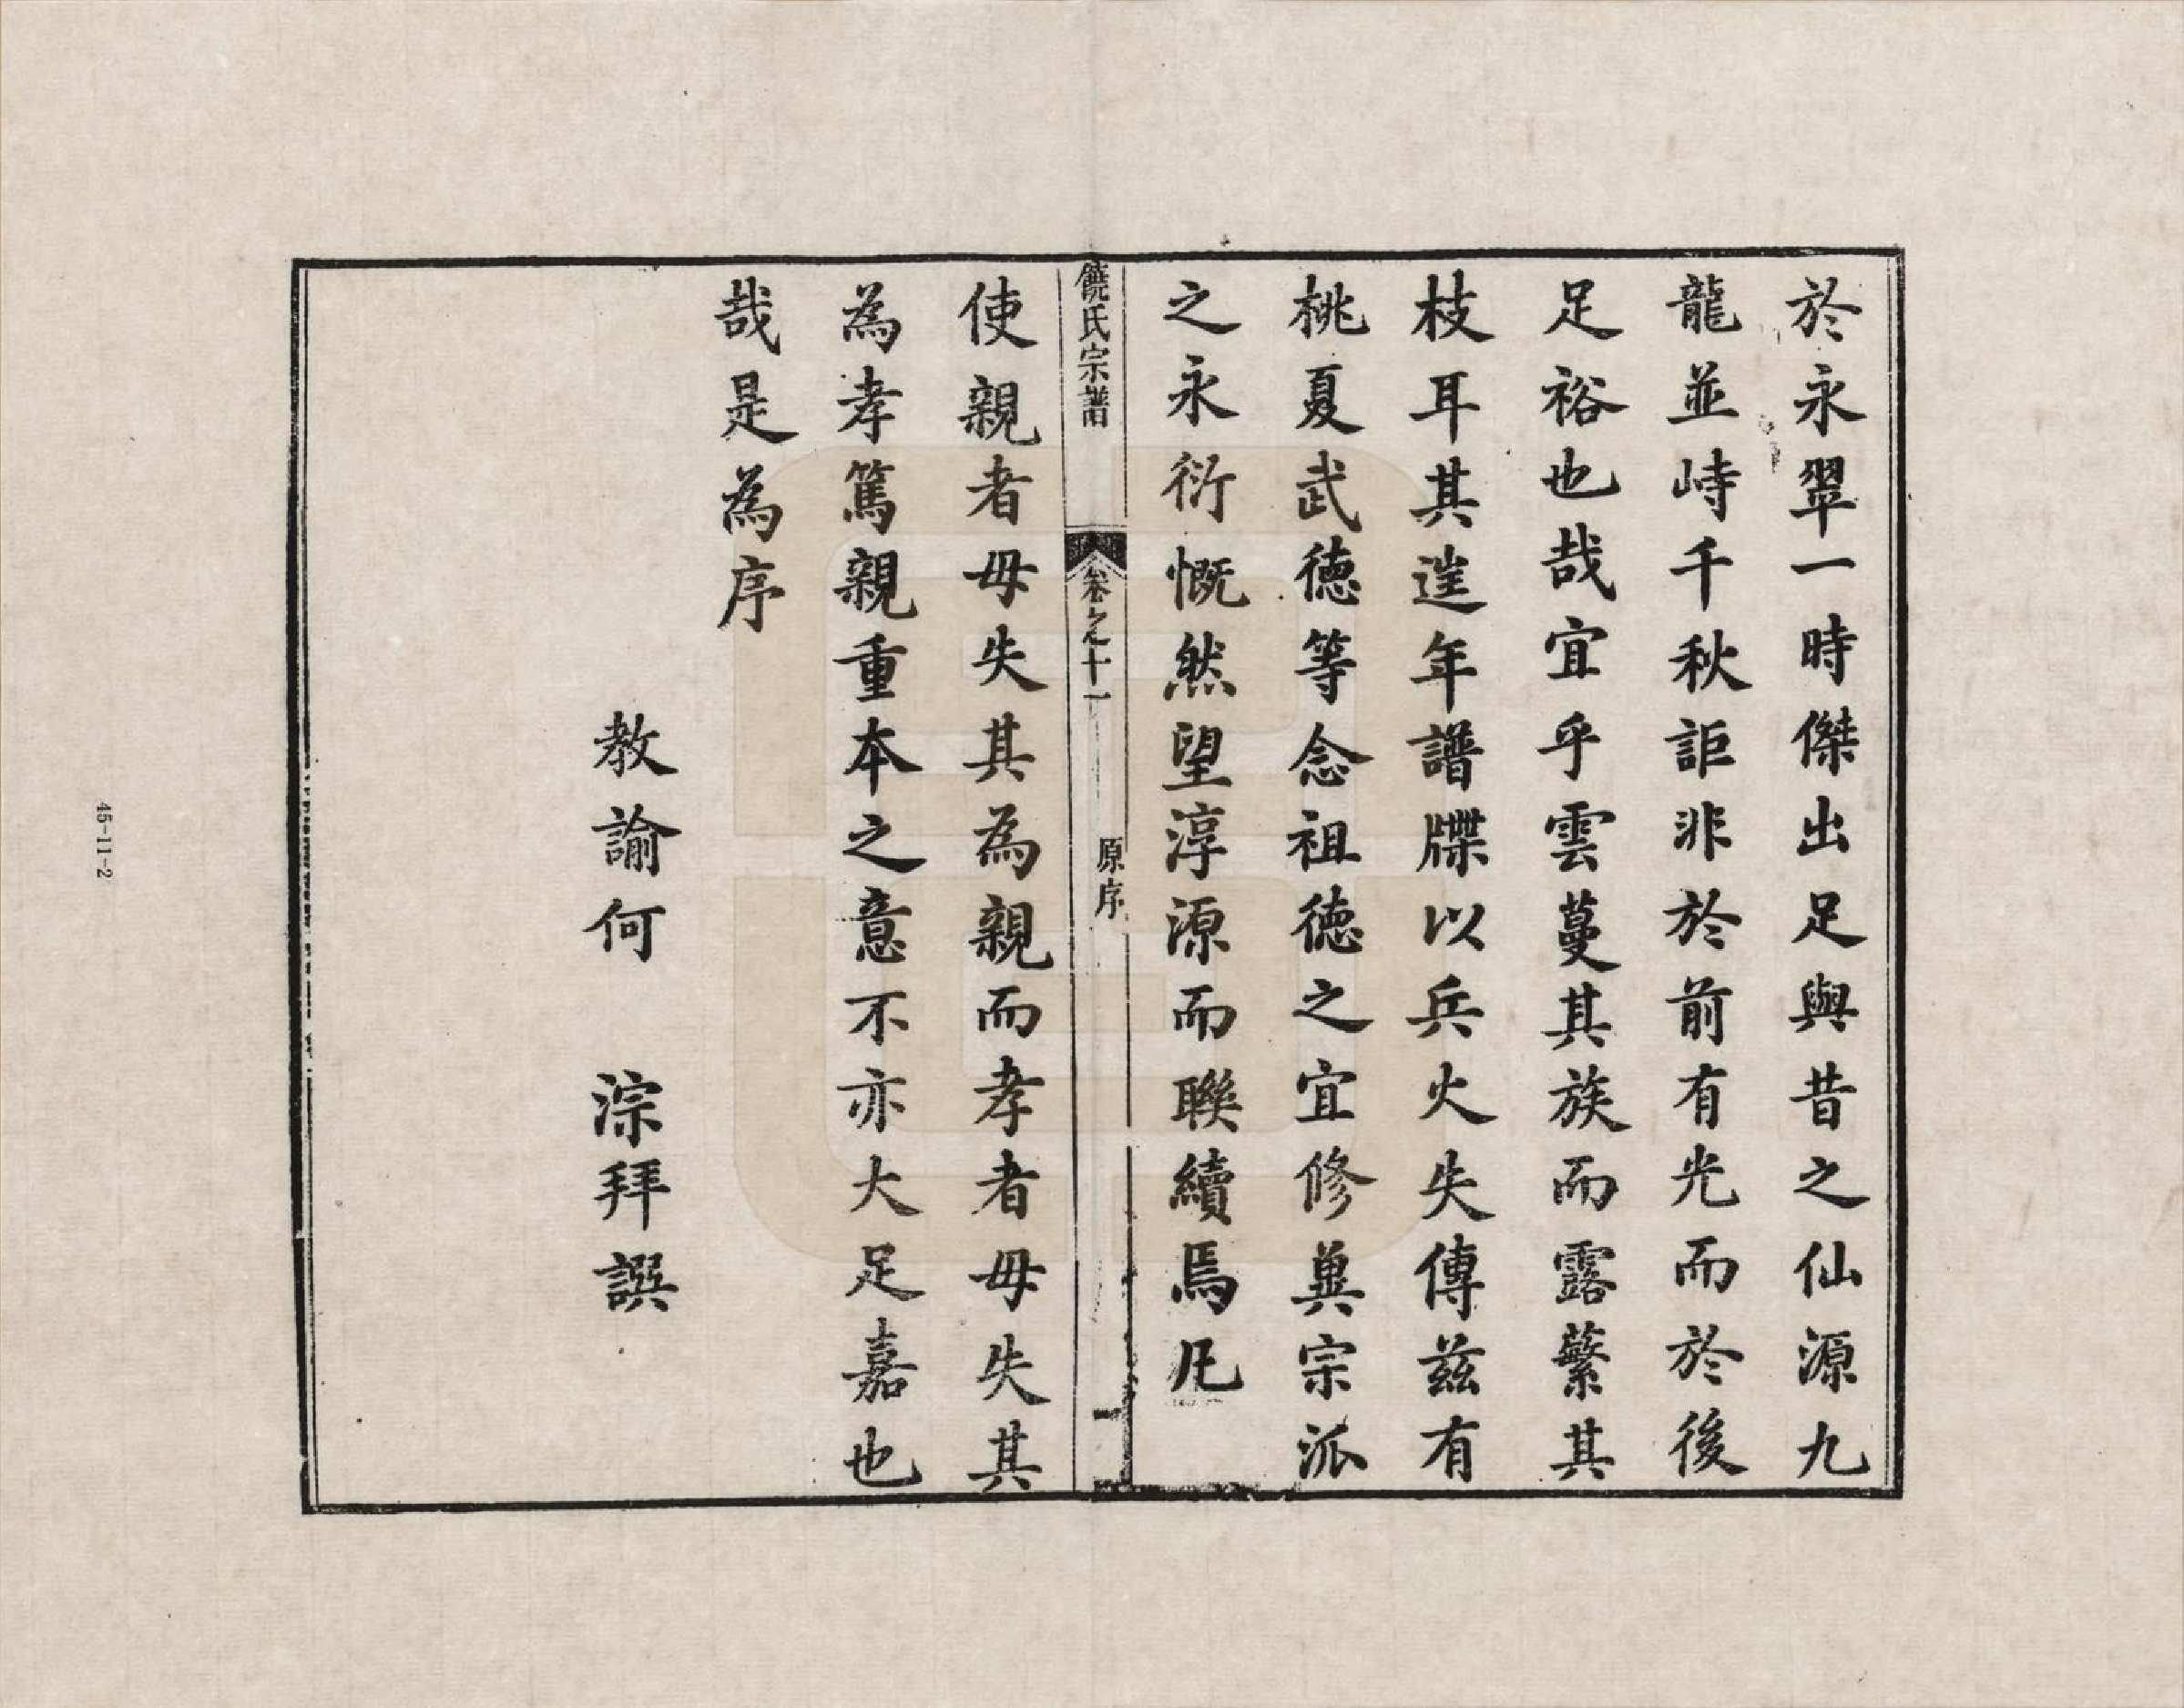 於永翠一時傑出足與昔之仙源九
龍並峙千秋詎非於前有光而於後
足裕也哉宜乎雲蔓其族而露蘩其
枝耳其遑年譜牒以兵火失傳茲有
桃夏武德等念祖德之宜修異宗派
之永衍慨然望淳源而聯續焉凡
饒氏宗譜
卷之十一
原序
一
使親者毋失其為親而孝者毋失其
為孝篤親重本之意不亦大足嘉也
哉是為序
教諭何 淙拜譔
45-11-2